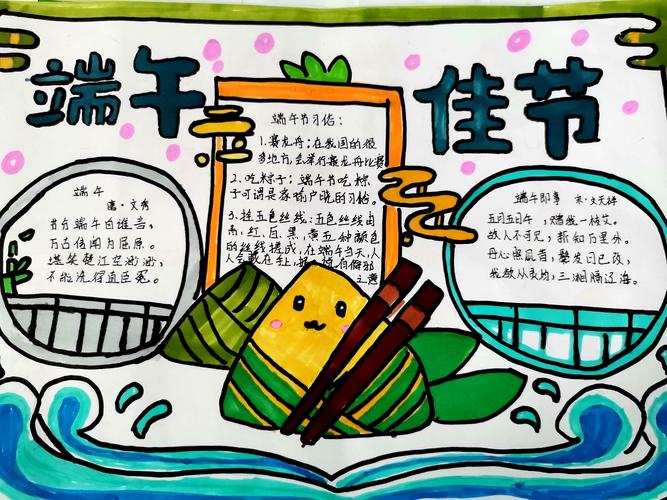 端午佳节
端午
唐·文秀
节分端午自谁言,
万古传闻为屈原。
堪笑楚江空渺渺,
不能洗得直臣冤。
端午节习俗:
1.赛龙舟:在我国的很
多地方,会举行赛龙舟比赛
2、吃粽子:端午节吃粽
子可谓是家喻户晓的习俗。
3、挂五色丝线:五色丝线由
青,红,白,黑,黄五种颜色
的丝线搓成,在端午当天,人
人会戴在手上,
之意
端午即事 宋·文天祥
五月五日午,赠我一枝艾。
故人不可见,新知万里外。
丹心照夙昔,鬓发日已改,
我欲从灵均,三湘隔辽海。